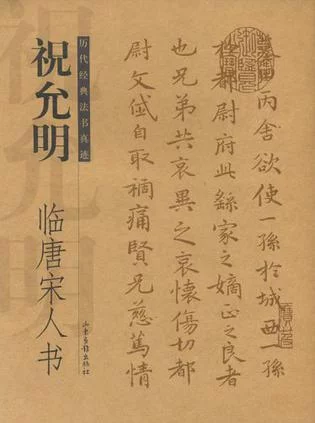 丙舍欲使一孫於城西一孫
於都尉府此繇家之嫡正之良者
也兄弟共哀異之哀懷傷切都
尉文岱自取禍痛賢兄慈篤情
历代经典法书真迹
祝允明
临唐宋人书
山东画报出版社
祝允明